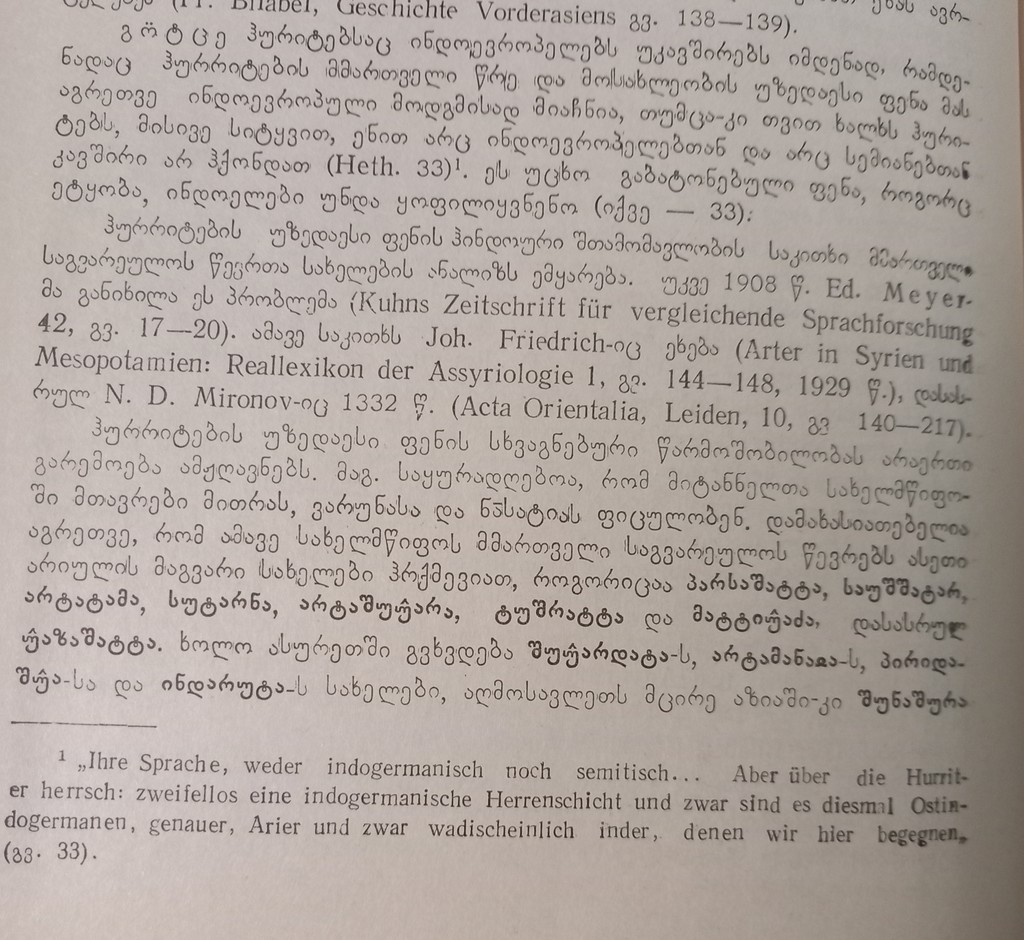 (Fr. Bilabel, Geschichte Vorderasiens გვ. 138—139).
გოტცე ჰურიტებსაც ინდოევროპელებს უკავშირებს იმდენად, რამდე-
ნადაც ჰურრიტების მმართველი წრე და მოსახლეობის უზედაესი ფენა მას
აგრეთვე ინდოევროპული მოდგმისად მიაჩნია, თუმცა-კი თვით ხალხს ჰური-
ტებს, მისივე სიტყვით, ენით არც ინდოევროპელებთან და არც სემიანებთან
კავშირი არ ჰქონდათ (Heth. 33)¹. ეს უცხო გაბატონებული ფენა, როგორც
ეტყობა, ინდოელები უნდა ყოფილიყვნენო (იქვე — 33).
ჰურრიტების უზედაესი ფენის ჰინდოური შთამომავლობის საკითხი მმართველ
საგვარეულოს წევრთა სახელების ანალიზს ემყარება. უკვე 1908 წ. Ed. Meyer-
მა განიხილა ეს პრობლემა (Kuhns Zeitschrift für vergleichende Sprachforschung
42, გვ. 17—20). ამავე საკითხს Joh. Friedrich-იც ეხება (Arter in Syrien und
Mesopotamien: Reallexikon der Assyriologie 1, გვ. 144—148, 1929 წ.), დასას-
რულ N. D. Mironov-იც 1332 წ. (Acta Orientalia, Leiden, 10, გვ 140—217).
ჰურრიტების უზედაესი ფენის სხვაგნებური წარმოშობილობას არაერთი
გარემოება ამჟღავნებს. მაგ. საყურადღებოა, რომ მიტანნელთა სახელმწიფო-
ში მთავრები მითრას, ვარუნასა და ნāსატიას ფიცულობენ. დამახასიათებელია
აგრეთვე, რომ ამავე სახელმწიფოს მმართველი საგვარეულოს წევრებს ასეთი
არიულის მაგვარი სახელები ჰრქმევიათ, როგორიცაა პარსაშატტა, საუშშატარ,
არტატამა, სუტარნა, არტაშუუ̂არა, ტუშრატტა და მატტიუ̂აძა, დასასრულ
უ̂აზაშატტა. ხოლო ასურეთში გვხვდება შუუ̂არდატა-ს, არტამანაა-ს, პირიდა-
შუ̂ა-სა და ინდარუტა-ს სახელები, აღმოსავლეთს მცირე აზიაში-კი შუნაშურა
¹ „Ihre Sprache, weder indogermanisch noch semitisch... Aber über die Hurrit-
er herrsch: zweifellos eine indogermanische Herrenschicht und zwar sind es diesmal Ostin-
dogermanen, genauer, Arier und zwar wadischeinlich inder, denen wir hier begegnen„
(გვ. 33).